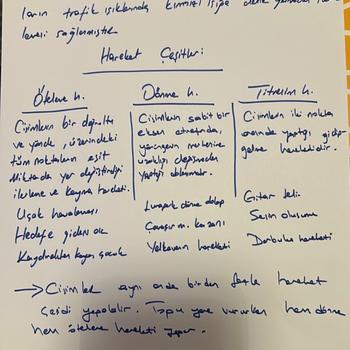 ların trafik ışıklarında kırmızı ışığa
lmesi sağlanmıştır
Hareket Çeşitleri
Öteleme h.
Cisimlerin bir doğrultu
ve yönde, üzerindeki
tüm noktaların eşit
miktarda yer değiştirdiği
ilerleme ve kayma hareketi.
Uçak havalanması
Hedefe giden ok
Kaydıraktan kayan çocuk
Dönme h.
Cisimlerin sabit bir
eksen etrafında,
yörüngenin merkezine
uzaklığı değişmeden
yaptığı
Lunapark dönme dolap
Çamaşır m. kazanı
Yelkovanın hareketi
Titreşim h.
Cisimlerin iki nokta
arasında yaptığı gidip
gelme hareketidir.
Gitar teli
Sesin oluşumu
Darbuka hareketi
→ Cisimler aynı anda birden fazla hareket
çeşidi yapabilir. Topa yere vururken hem dönme
hem öteleme hareketi yapar.